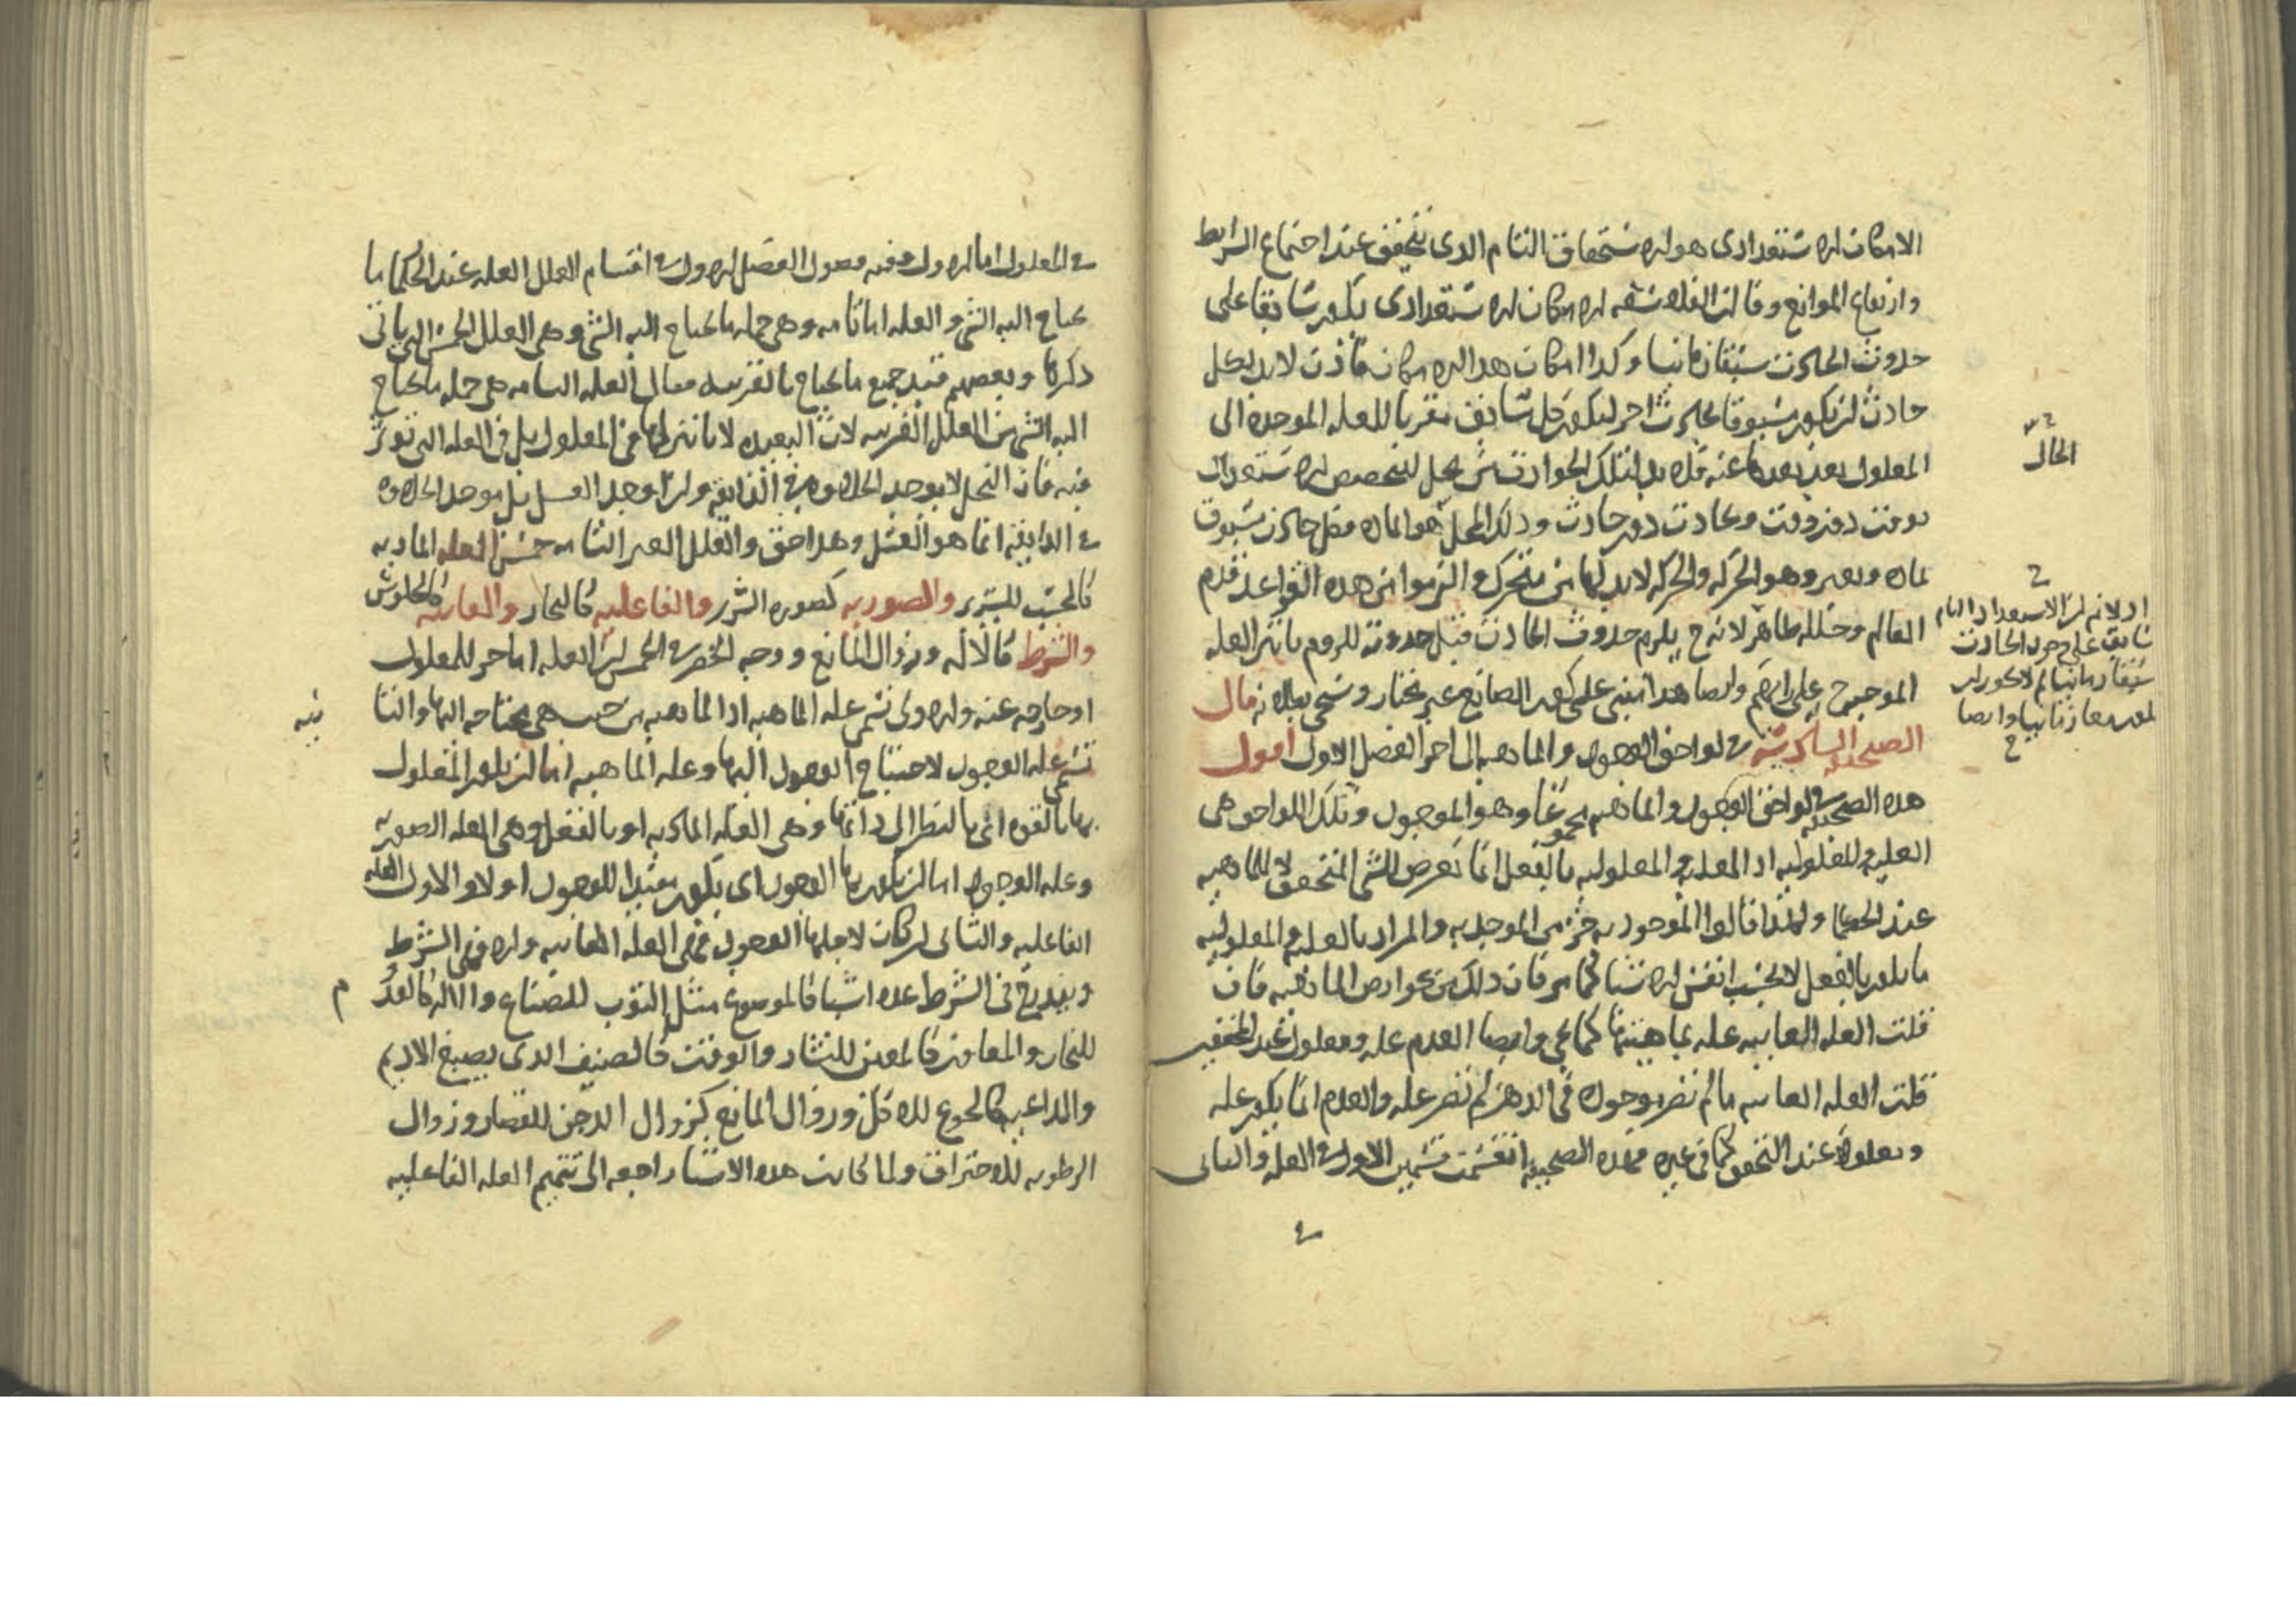 الامكان الاستعدادى هو الاستحقاق التام الدى يتحقق عند اجتماع الشرايط
وارتفاع الموانع وقالت الفلاسفه الامكان الاستعدادى يكون سابقا على
حدوث الحادث سبقا زمانيا وكدا امكان هدا الامكان فاذن لابد لكل
حادث ان يكون مسبوقا بحادث اخر ليكون كل سابق مقربا للعله الموجده الى
المعلول بعد بعدها عنه فلابد لتلك الحوادث من محل ليتخصص الاستعداد
بوقت دون وقت وبحادث دون حادث ودلك المحل هو الماده فكل حادث مسبوق
بماده وبغير وهو الحركه والحركه لابد لها من متحرك والتزموا من هده القواعد قدم
العالم وخلله ظاهر لانه ح يلزم حدوث الحادث قبل حدوثه للزوم تاثير العله
الموجبه ح على رايهم وايضا هدا مبنى على كون الصانع غير مختار وسيجى بطلانه قال
الصحيفه السادسه فى لواحق الوجود والماهيه الى اخر الفصل الاول اقول
هده الصحيفه فى لواحق الوجود والماهيه مجموعا وهو الموجود وتلك اللواحق هى
العليه والمعلوليه اد العليه والمعلوليه بالفعل انما تعرض للشى المتحقق لا للماهيه
عند الحكما ولهدا قالوا الموجوديه جزء من الموجديه والمراد بالعليه والمعلوليه
ما يكون بالفعل لا بحسب انفس الاشيا كما مر فان دلك من عوارض الماهيه فان
قلت العله الغاييه عله بماهيتها كما يجى وايضا العدم عله ومعلول عند المحققين
قلت العله الغاييه ما لم تصر موجوده فى الدهن لم تصر عله والعدم انما يكون عله
ومعلولا عند التحقق كما فى غيره فهده الصحيفه انقسمت قسمين الاول فى العله والثانى
الحال
اد لا نم ان الاستعداد التام
سابق على وجود الحادث
سبقا زمانيا لم لا يكون ان
يكون معا زمانيا وايضا
فى المعلول اما الاول ففيه فصول الفصل الاول فى اقسام العلل العله عند الحكما ما
يحتاج اليه الشى والعله اما تامه وهى جمله ما يحتاج اليه الشى وهى العلل الخمس التى ياتى
دكرها وبعضهم قيد جميع ما يحتاج بالقريبه فقال العله التامه هى جمله ما يحتاج
اليه الشى من العلل القريبه لان البعيده لا تاثير لها فى المعلول بل فى العله التى توثر
فيه فان النحل لا يوجد الحلاوه فى الذايقه وان اوجد العسل بل موجد الحلاوه
فى الدايقه انما هو العسل وهدا حق والعلل الغير التامه خمس العله الماديه
كالخشب للسرير والصوريه كصوره السرير والفاعليه كالنجار والغاييه كالجلوس
والشرط كالاله وزوال المانع ووجه الحصر فى الخمس ان العله اما جزء للمعلول
او خارجه عنه والاولى تسمى عله الماهيه اد الماهيه من حيث هى محتاجه اليها والثا
نيه
تسمى عله الوجود لاحتياج الوجود اليها وعله الماهيه اما ان يكون المعلول
بها بالقوه اى بالنظر الى ذاتها وهى العله الماديه او بالفعل وهى العله الصوريه
وعله الوجود اما ان يكون بها الوجود اى يكون مفيدا للوجود او لا والاول العله
الفاعليه والثانى ان كان لاجلها الوجود فهى العله الغاييه والا فهى الشرط
ويندرج فى الشرط عده اشيا كالموضوع مثل الثوب للصباغ والاله كالقدوم
للنجار والمعاون كالمعين للنشار والوقت كالصيف الدى يصبغ الاديم
والداعيه كالجوع للاكل وزوال المانع كزوال الدجن للقصار وزوال
الرطوبه للاحتراق ولما كانت هده الاشيا راجعه الى تتميم العله الفاعليه